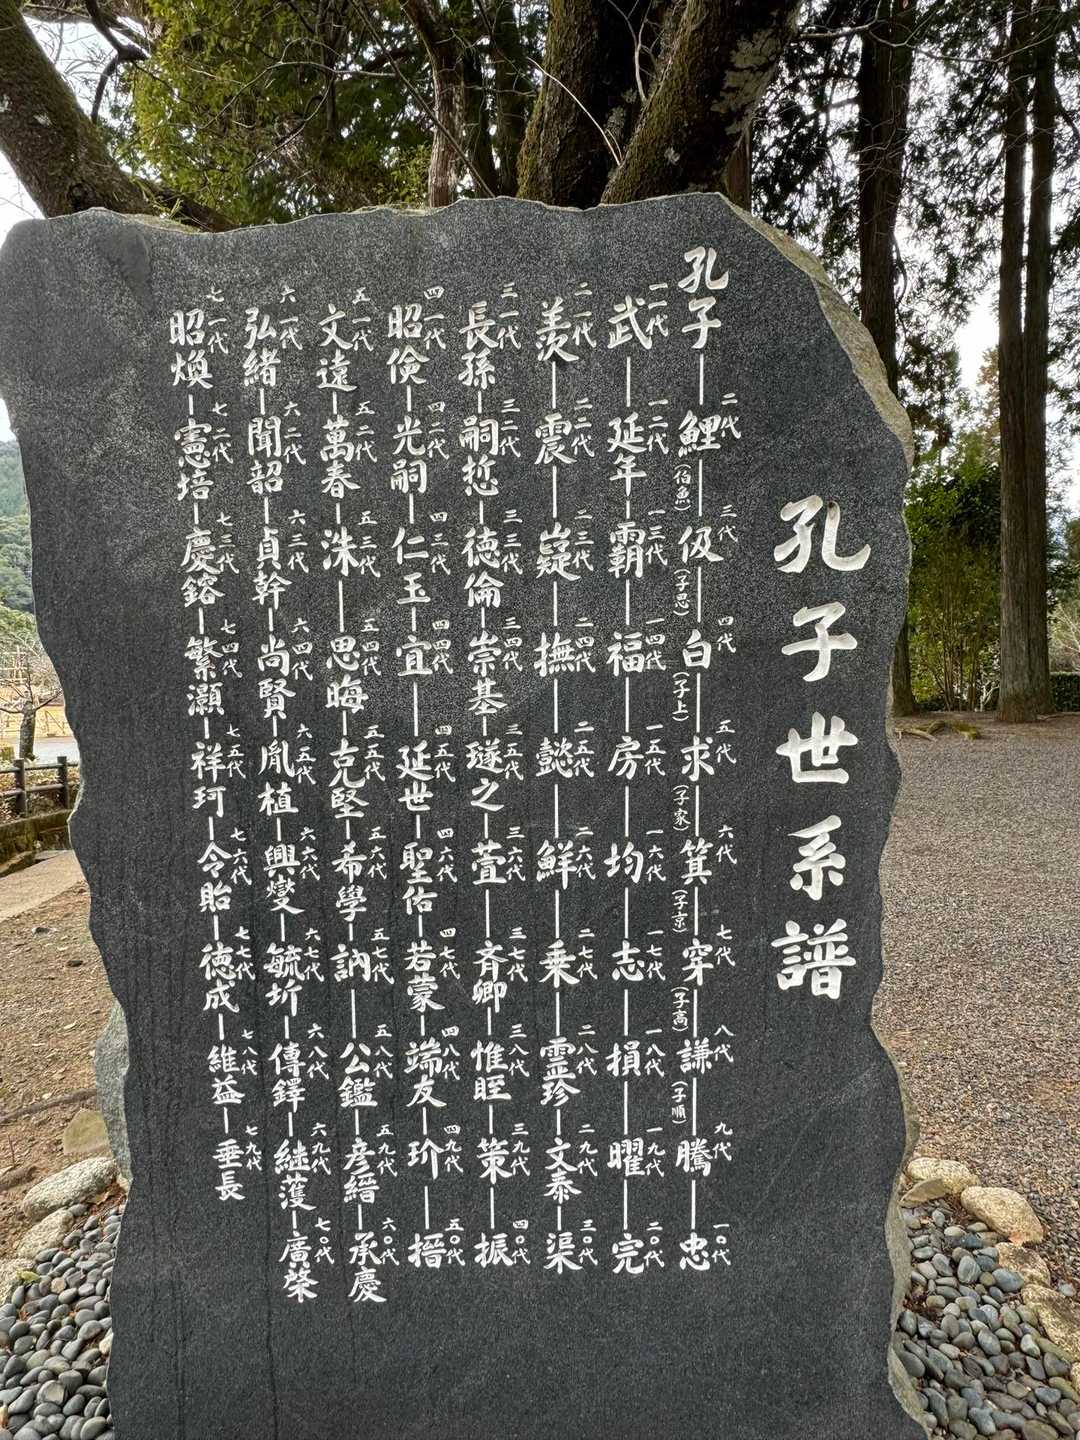 孔子世系譜
孔子―二代鯉(伯魚)―三代伋(子思)―四代白(子上)―五代求(子家)―六代箕(子京)―七代穿(子高)―八代謙(子順)―九代騰―一〇代忠
一一代武―一二代延年―一三代霸―一四代福―一五代房―一六代均―一七代志―一八代損―一九代曜―二〇代完
二一代羨―二二代震―二三代嶷―二四代撫―二五代懿―二六代鮮―二七代乗―二八代霊珍―二九代文泰―三〇代渠
三一代長孫―三二代嗣悊―三三代徳倫―三四代崇基―三五代璲之―三六代萱―三七代斉卿―三八代惟晊―三九代策―四〇代振
四一代昭倹―四二代光嗣―四三代仁玉―四四代宜―四五代延世―四六代聖佑―四七代若蒙―四八代端友―四九代玠―五〇代搢
五一代文遠―五二代萬春―五三代洙―五四代思晦―五五代克堅―五六代希學―五七代訥―五八代公鑑―五九代彦縉―六〇代承慶
六一代弘緒―六二代聞韶―六三代貞幹―六四代尚賢―六五代胤植―六六代興燮―六七代毓圻―六八代傳鐸―六九代継濩―七〇代廣棨
七一代昭煥―七二代憲培―七三代慶鎔―七四代繁灝―七五代祥珂―七六代令貽―七七代徳成―七八代維益―七九代垂長